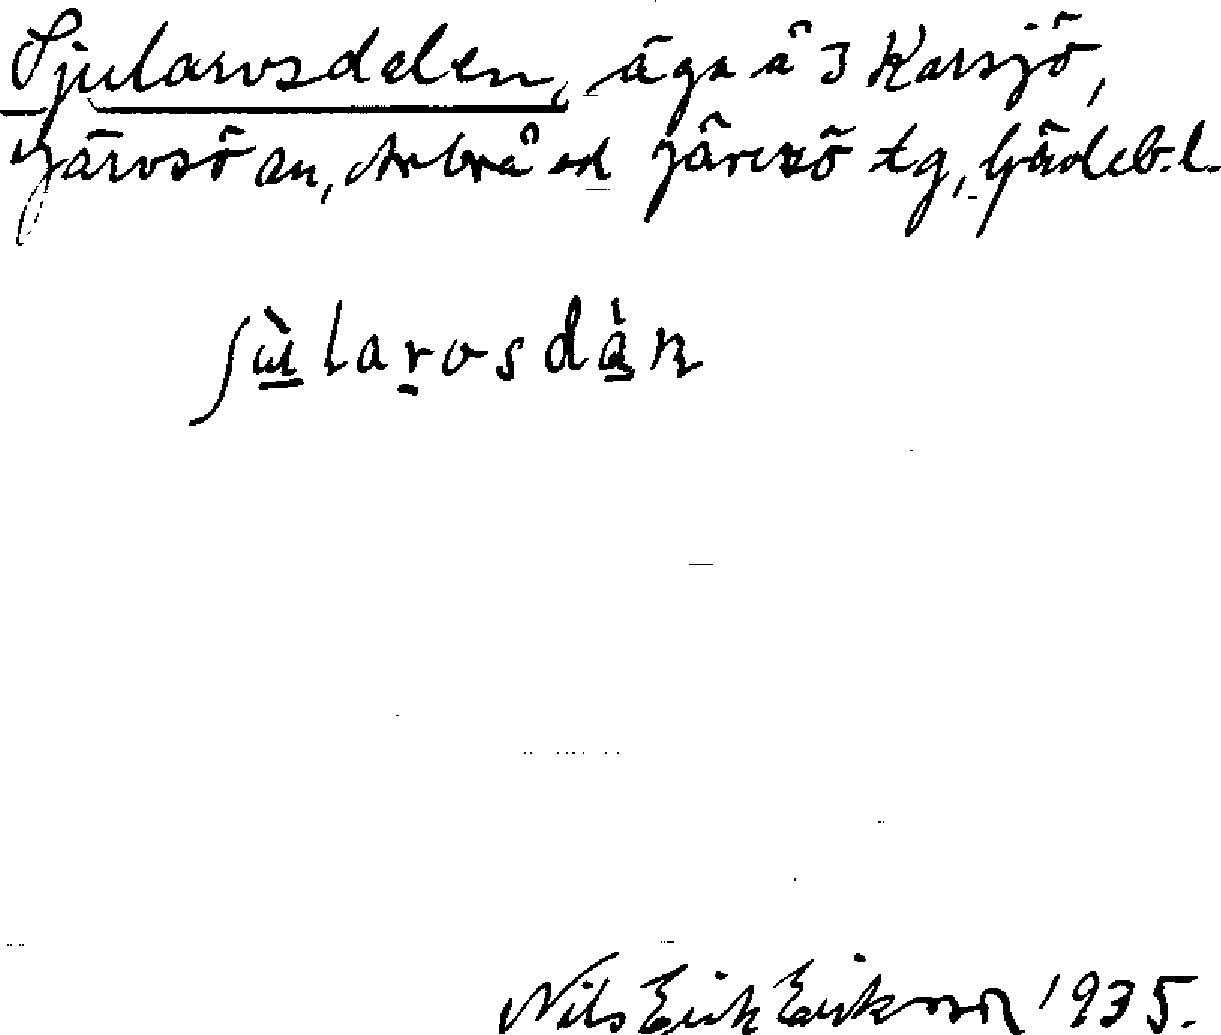 Sjularvsdelen, äga å 3 Karsjö,
Järvsö sn, Arbrå o J Järvsö tg, Gävleb. l.
ʃu̠̇larvsdán
Nils Erik Eriksson 1935.